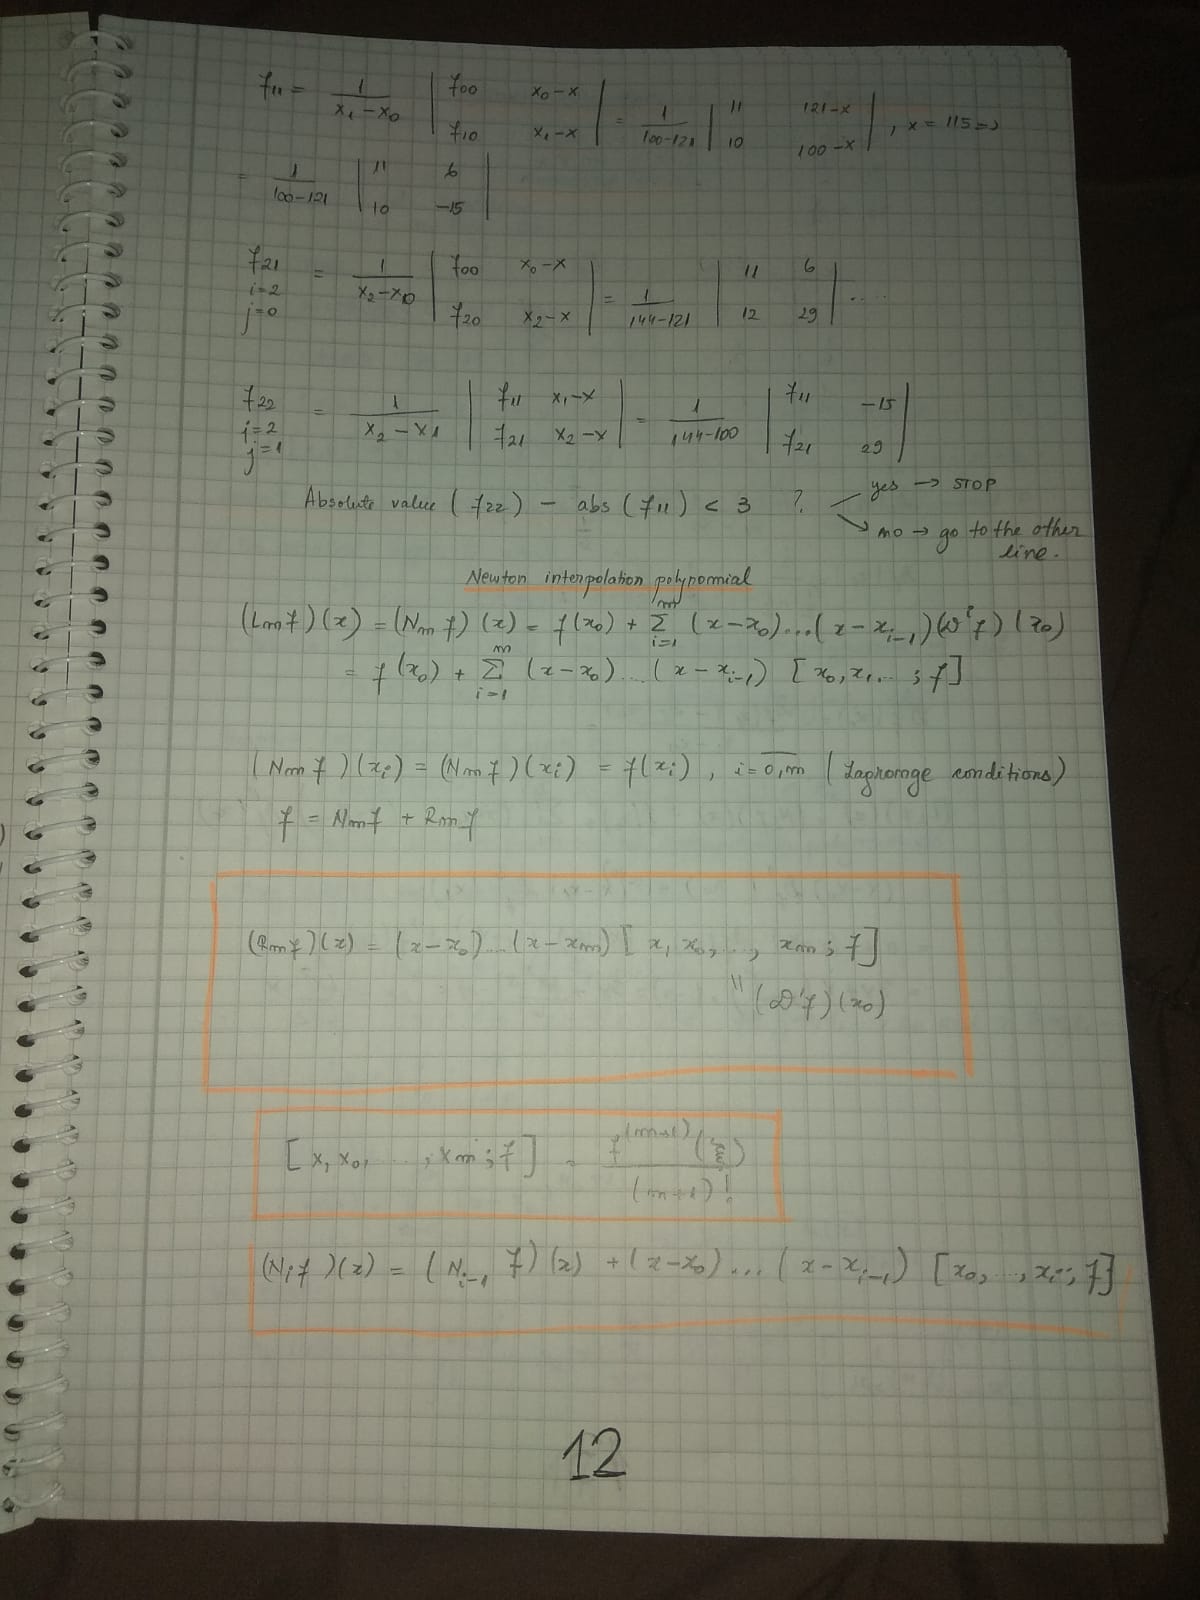 f11 = 1/(x1 − x0) | f00 x0−x ; f10 x1−x | = 1/(100−121) | 11 121−x ; 10 100−x | , x = 115 =>
= 1/(100−121) | 11 6 ; 10 −15 |
f21 = 1/(x2−x0) | f00 x0−x ; f20 x2−x | = 1/(144−121) | 11 6 ; 12 29 | ....
i=2
j=0
f22 = 1/(x2 − x1) | f11 x1−x ; f21 x2−x | = 1/(144−100) | f11 −15 ; f21 29 |
i=2
j=1
Absolute value (f22) − abs (f11) < 3 ?
yes → STOP
no → go to the other
line.
Newton interpolation polynomial
(Lm f)(x) = (Nm f)(x) = f(x0) + Σ_{i=1}^{m} (x−x0)...(x − x_{i−1})(D^i f)(x0)
= f(x0) + Σ_{i=1}^{m} (x−x0)...(x − x_{i−1}) [x0, x1, .. ; f]
(Nm f)(xi) = (Nm f)(xi) = f(xi) , i = 0,m (Lagrange conditions)
f = Nm f + Rm f
(Rm f)(x) = (x−x0)....(x−xm) [x, x0, ..., xm ; f]
" (D'f)(x0)
[x, x0, ...., xm ; f] = f^(m+1)(ξ)/(m+1)!
(Ni f)(x) = (N_{i−1} f)(x) + (x−x0)...(x − x_{i−1}) [x0, ..., xi ; f]
12